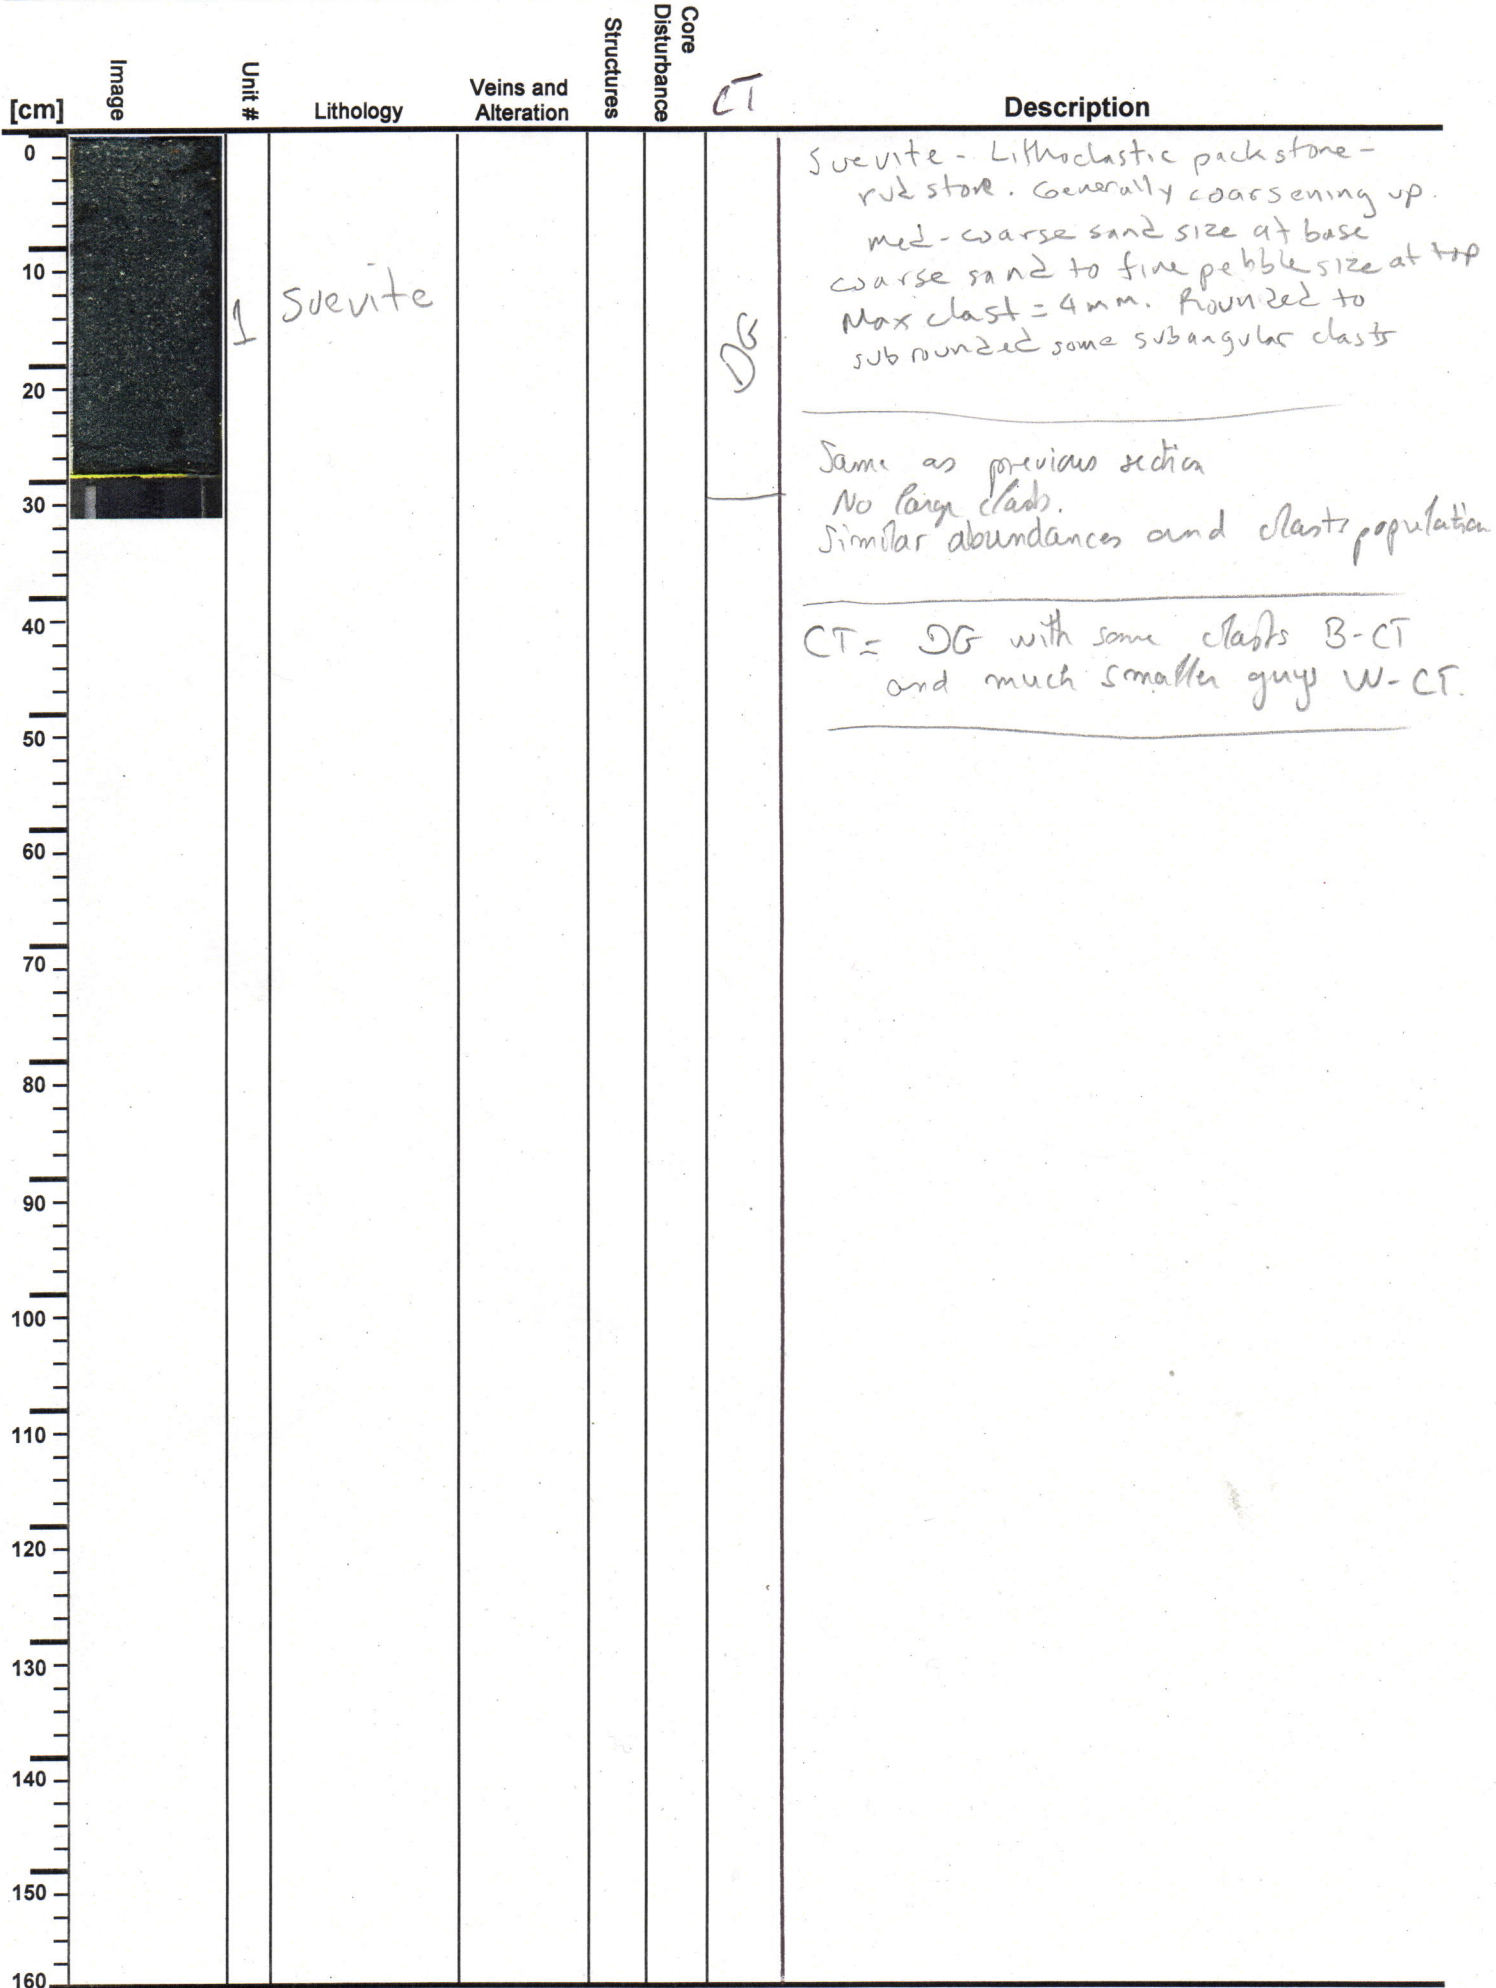 [cm]
Image
Unit #
Lithology
Veins and
Alteration
Structures
Core
Disturbance
CT
Description
0
10
20
30
40
50
60
70
80
90
100
110
120
130
140
150
160
1
Suevite
DG
Suevite - Lithoclastic packstone -
rudstone. Generally coarsening up.
med-coarse sand size at base
coarse sand to fine pebble size at top
Max clast = 4 mm. Rounded to
subrounded some subangular clasts
Same as previous section
No large clasts.
Similar abundances and clasts population
CT = DG with some clasts B-CT
and much smaller guys W-CT.